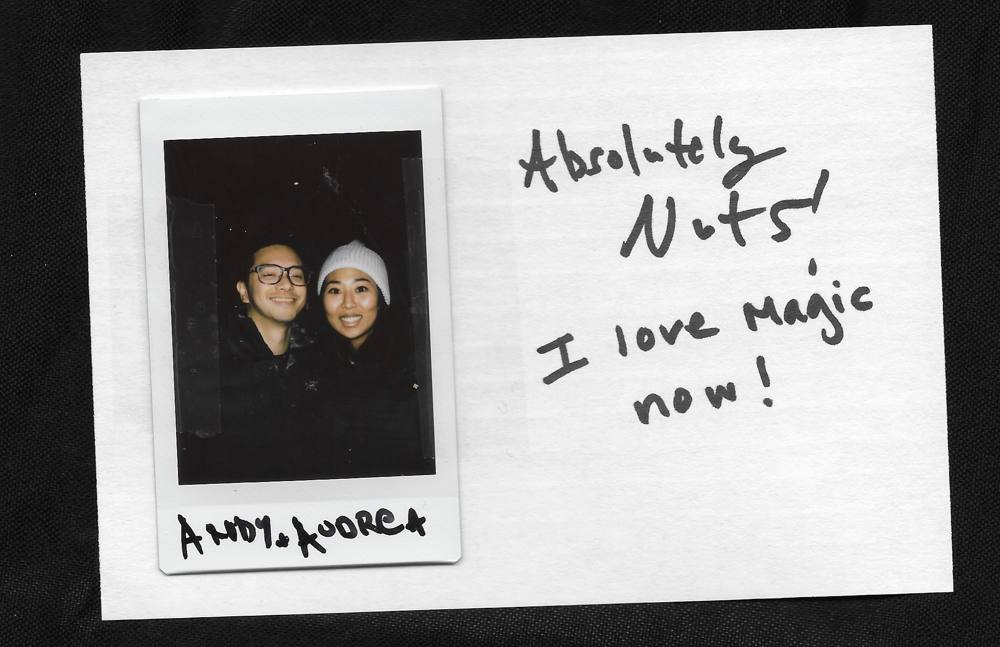 ANDY & AUDREA
Absolutely
Nuts!
I love Magic
now!